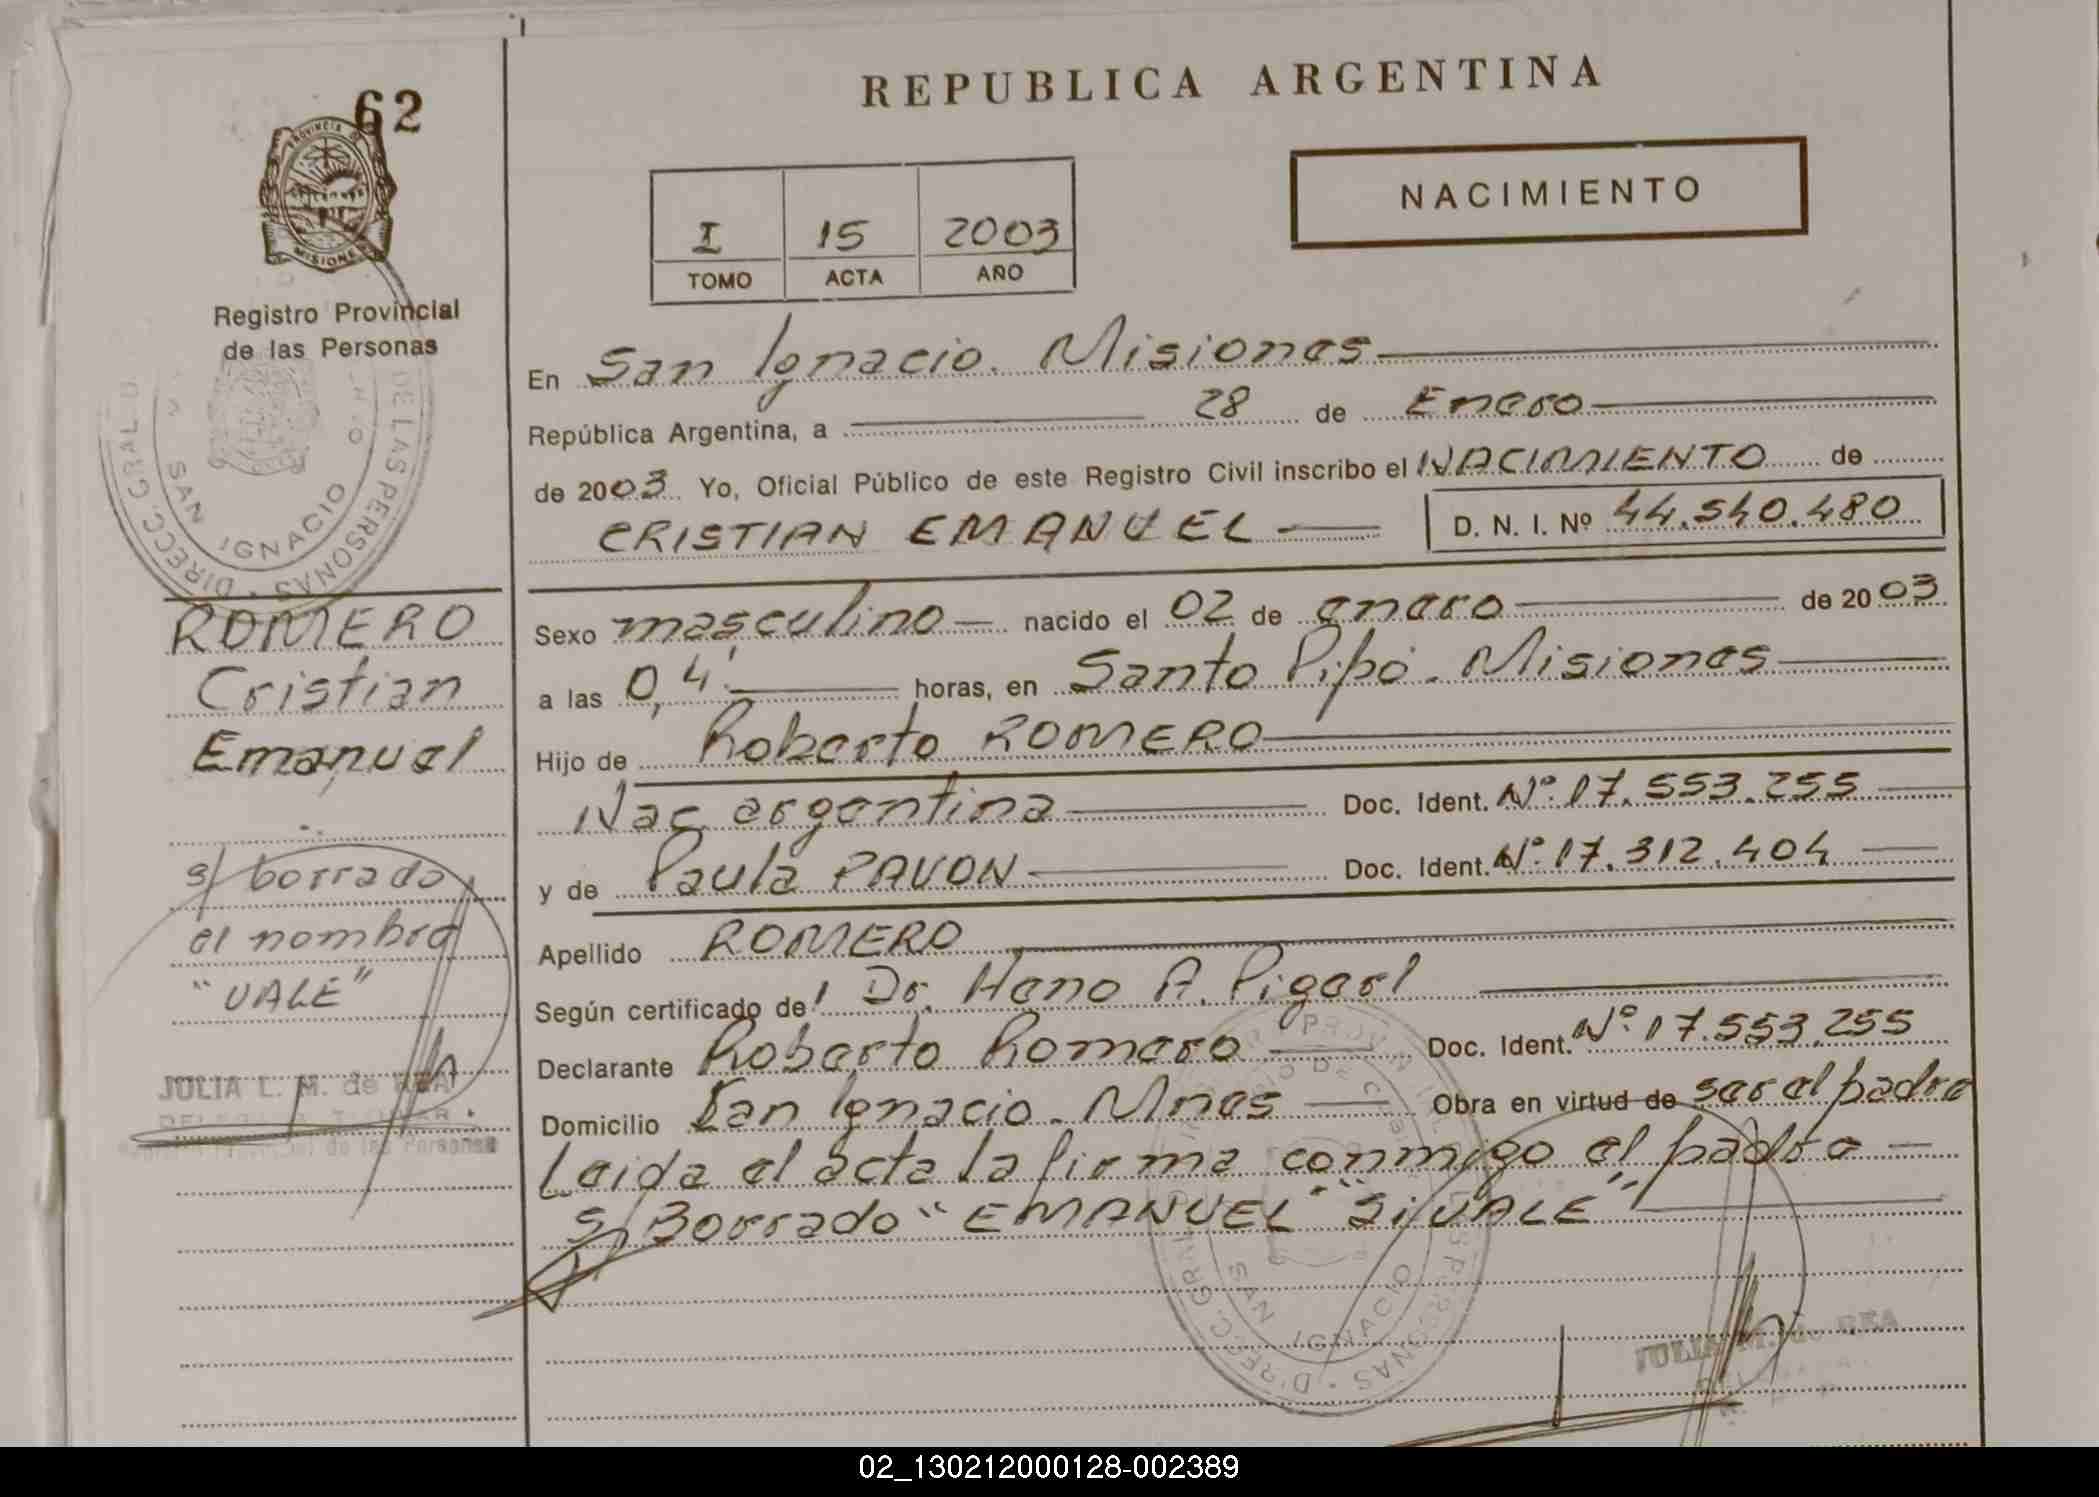 62
REPUBLICA ARGENTINA
NACIMIENTO
I 15 2003
TOMO ACTA AÑO
PROVINCIA DE
MISIONES
Registro Provincial
de las Personas
DIRECC. GRAL. DE LAS PERSONAS
SAN IGNACIO
En San Ignacio. Misiones
República Argentina, a 28 de Enero
de 2003 Yo, Oficial Público de este Registro Civil inscribo el NACIMIENTO de
CRISTIAN EMANUEL D. N. I. Nº 44.540.480
ROMERO
Cristian
Emanuel
s/ borrado
el nombre
"VALE"
JULIA L. M. de REA
de las Personas
Sexo masculino nacido el 02 de enero de 2003
a las 0,4' horas, en Santo Pipó. Misiones
Hijo de Roberto ROMERO
Nac argentina Doc. Ident. Nº 17.553.255
y de Paula PAVON Doc. Ident. Nº 17.312.404
Apellido ROMERO
Según certificado del Dr. Hano A. Pigerl
Declarante Roberto Romero Doc. Ident. Nº 17.553.255
Domicilio San Ignacio. Mnes Obra en virtud de ser el padre
Leida el acta la firma conmigo el padre
s/ Borrado "EMANUEL" "Si/VALE"
DIRECC. GRAL. PERSONAS
SAN IGNACIO
JULIA M. de REA
02_130212000128-002389